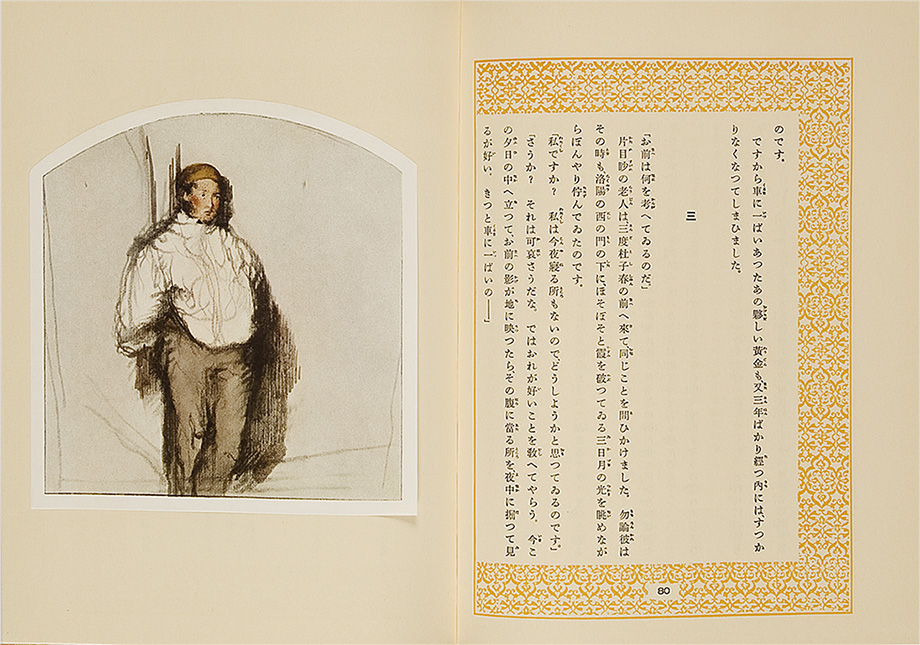 のです。
ですから車に一ぱいあつたあの夥しい黄金も、又三年ばかり經つ內には、すつか
りなくなつてしまひました。
三
「お前は何を考へてゐるのだ。」
片目眇の老人は、三度杜子春の前へ來て、同じことを問ひかけました。勿論彼は
その時も、洛陽の西の門の下に、ほそぼそと霞を破つてゐる三日月の光を眺めなが
ら、ぼんやり佇んでゐたのです。
「私ですか？　私は今夜寢る所もないので、どうしようかと思つてゐるのです。」
「さうか？　それは可哀さうだな。ではおれが好いことを敎へてやらう。今こ
の夕日の中へ立つて、お前の影が地に映つたら、その腹に當る所を、夜中に掘つて見
るが好い、きつと車に一ぱいの――」
80